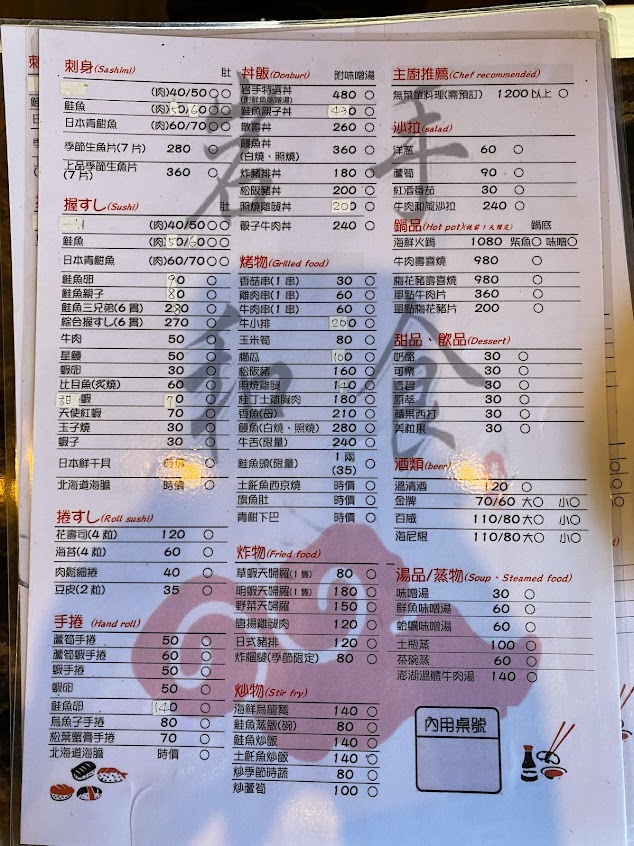 刺身(Sashimi) 肚
(肉)40/50○○
鮭魚 (肉)50/60○○
日本青魽魚 (肉)60/70○○
季節生魚片(7片) 280 ○
上品季節生魚片
(7片) 360 ○
握すし(Sushi)
(肉)40/50○○
鮭魚 (肉)50/60○○
日本青魽魚 (肉)60/70○○
鮭魚卵 90 ○
鮭魚親子 80 ○
鮭魚三兄弟(6貫) 280 ○
綜合握すし(6貫) 270 ○
牛肉 50 ○
星鰻 50 ○
蝦卵 30 ○
比目魚(炙燒) 60 ○
甜蝦 70 ○
天使紅蝦 70 ○
玉子燒 30 ○
蝦子 30 ○
日本鮮干貝 時價 ○
北海道海膽 時價 ○
捲すし(Roll sushi)
花壽司(4粒) 120 ○
海苔(4粒) 60 ○
肉鬆細捲 40 ○
豆皮(2粒) 35 ○
手捲 (Hand roll)
蘆筍手捲 50 ○
蘆筍蝦手捲 60 ○
蝦手捲 50 ○
蝦卵 50 ○
鮭魚卵 140 ○
烏魚子手捲 80 ○
松葉蟹膏手捲 70 ○
北海道海膽 時價 ○
丼飯(Donburi) 附味噌湯
岩手特選丼
(附鮮魚味噌湯) 480 ○
鮭魚親子丼 ○
散壽丼 260 ○
鰻魚丼
(白燒、照燒) 360 ○
炸豬排丼 180 ○
松阪豬丼 200 ○
照燒雞腿丼 200 ○
骰子牛肉丼 240 ○
烤物(Grilled food)
香菇串(1串) 30 ○
雞肉串(1串) 60 ○
牛肉串(1串) 60 ○
牛小排 200 ○
玉米筍 80 ○
櫛瓜 ○
松阪豬 160 ○
照燒雞腿 140 ○
桂丁土雞胸肉 180 ○
香魚(母) 210 ○
鰻魚(白燒、照燒) 280 ○
牛舌(限量) 240 ○
鮭魚頭(限量) 1兩
(35) ○
土魠魚西京燒 時價 ○
旗魚肚 時價 ○
青魽下巴 時價 ○
炸物(Fried food)
草蝦天婦羅(1隻) 80 ○
明蝦天婦羅(1隻) 180 ○
野菜天婦羅 150 ○
唐揚雞腿肉 120 ○
日式豬排 120 ○
炸榴槤(季節限定) 80 ○
炒物(Stir fry)
海鮮烏龍麵 140 ○
鮭魚蒸飯(碗) 80 ○
鮭魚炒飯 140 ○
土魠魚炒飯 140 ○
炒季節時蔬 80 ○
炒蘆筍 100 ○
主廚推薦(Chef recommended)
無菜單料理(需預訂) 1200以上 ○
沙拉(salad)
洋蔥 60 ○
蘆筍 90 ○
紅酒番茄 30 ○
牛肉和風沙拉 240 ○
鍋品(Hot pot)(提前1天預定) 鍋底
海鮮火鍋 1080 柴魚○ 味噌○
牛肉壽喜燒 980 ○
梅花豬壽喜燒 980 ○
單點牛肉片 360 ○
單點梅花豬片 200 ○
甜品、飲品(Dessert)
奶酪 30 ○
可樂 30 ○
雪碧 30 ○
原萃 30 ○
蘋果西打 30 ○
美粒果 30 ○
酒類(beer)
溫清酒 120 ○
金牌 70/60 大○ 小○
百威 110/80 大○ 小○
海尼根 110/80 大○ 小○
湯品/蒸物(Soup、Steamed food)
味噌湯 30 ○
鮮魚味噌湯 60 ○
蛤蠣味噌湯 60 ○
土瓶蒸 100 ○
茶碗蒸 60 ○
澎湖溫體牛肉湯 140 ○
內用桌號
岩手和食